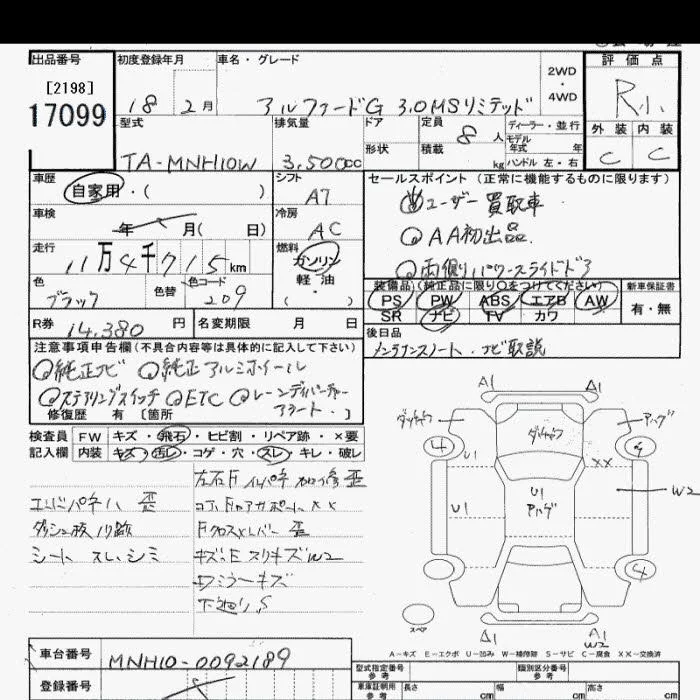 出品番号 初度登録年月 車名・グレード 評価点
[2198]
17099
18 2月 アルファードG 3.0MSリミテッド 2WD・4WD R小
型式 排気量 ドア 定員 8人 ディーラー・並行 外装 内装
形状 積載 kg モデル年式 年 ハンドル 左・右
TA-MNH10W 3,500cc C C
車歴 自家用・( ) シフト A7
セールスポイント (正常に機能するものに限ります)
ユーザー買取車
車検 年 月( 日) 冷房 AC
AA初出品
走行 11万4千715km 燃料 ガソリン 軽・油 ( )
両側パワースライドドア
色 ブラック 色替 色コード 209
装備品 (純正品に限り○をつけてください) 新車保証書
PS PW ABS エアB AW 有・無
SR ナビ TV カワ
R券 14,380円 名変期限 月 日
後日品
メンテナンスノート・ナビ取説
注意事項申告欄(不具合内容等は具体的に記入して下さい)
純正ナビ 純正アルミホイール
ステアリングスイッチ ETC レーンディパーチャー
アラート.
修復歴 有 [箇所 ]
検査員 FW キズ・飛石・ヒビ割・リペア跡・×要
記入欄 内装 キズ・汚レ・コゲ・穴・スレ・キレ・破レ
左右Fインパネ 加修 歪
コアサポート ××
ダッシュ板ノリ跡
Fクロスメンバー 歪
シート スレ、シミ
キズ・E スリキズW2
ミラーキズ
下廻りS
A1 A1
アハゲ
4 4
U1 ××
U1 U1 アハゲ W2
4
スペア
A1 A1
W2
A-キズ E-エクボ U-凹み W-補修跡 S-サビ C-腐食 ××-交換済
車台番号 MNH10-0092189
型式指定番号 参考 類別区分番号 参考
登録番号
車庫証明用 参考 長さ cm 幅 cm 高さ cm